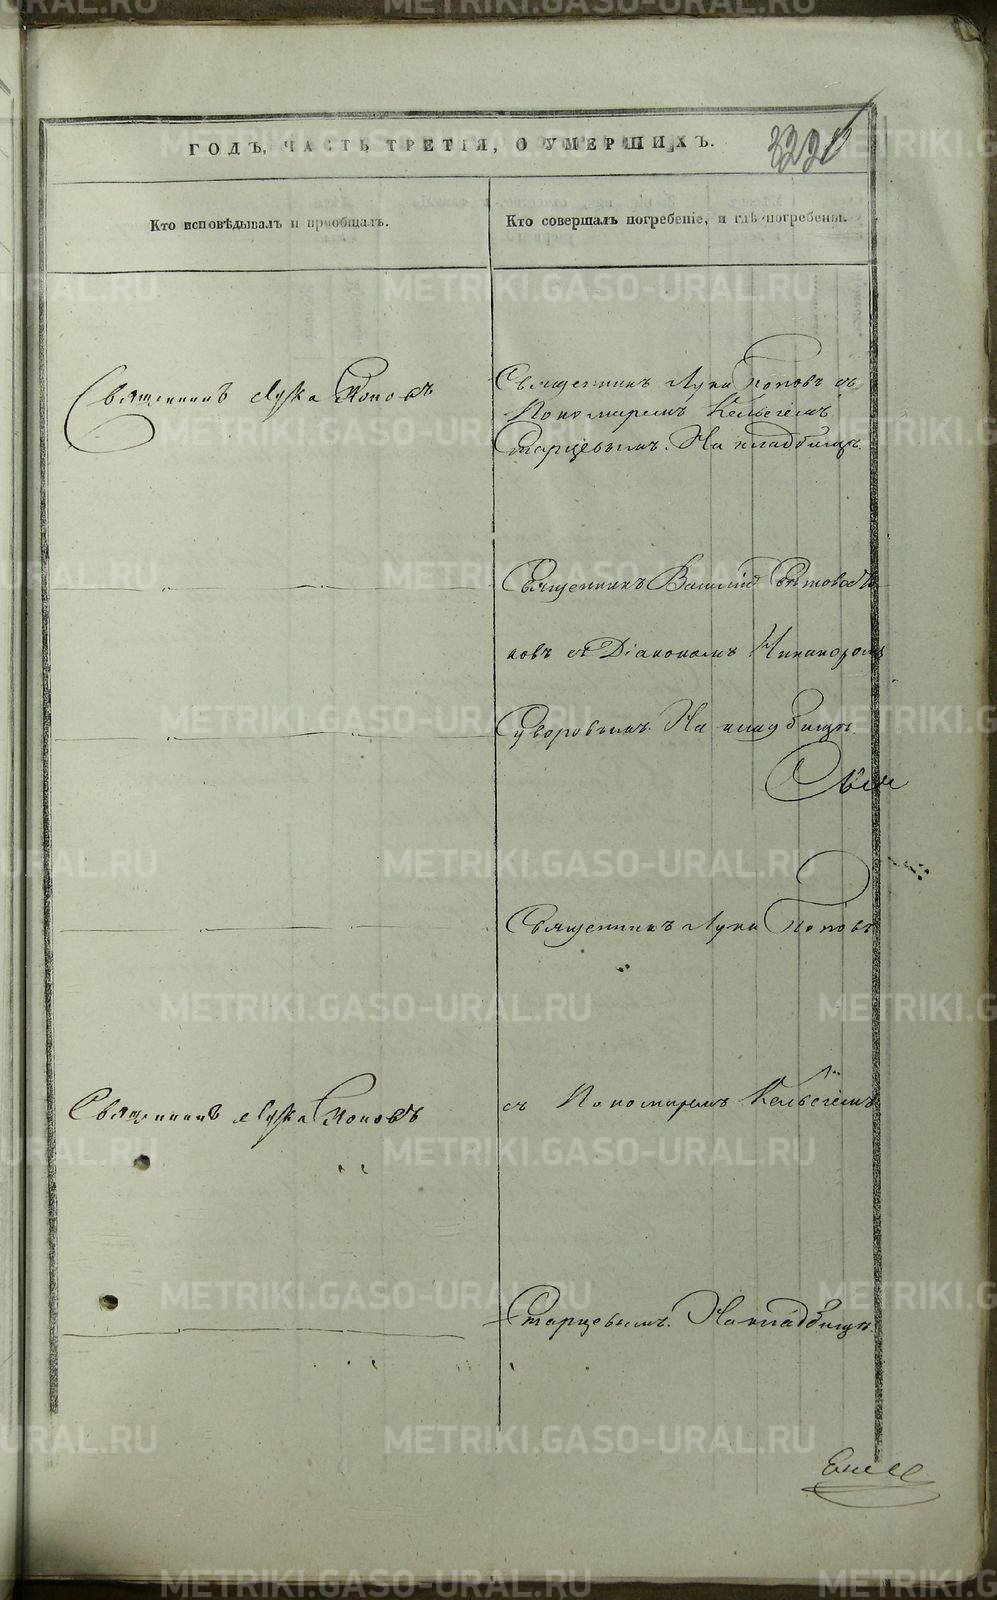 ГОДЪ, ЧАСТЬ ТРЕТІЯ, О УМЕРШИХЪ.
Кто исповѣдывалъ и пріобщалъ.
Кто совершалъ погребеніе, и гдѣ погребены.
Священникъ Лука Поповъ
Священникъ Лука Поповъ съ
Пономаремъ
Старцевымъ. На кладбищѣ.
Священникъ Василій
ковъ съ Діакономъ Никаноромъ
Суворовымъ. На кладбищѣ.
Священникъ Лука Поповъ
Священникъ Лука Поповъ
съ Пономаремъ
Старцевымъ. На кладбищѣ.
METRIKI.GASO-URAL.RU